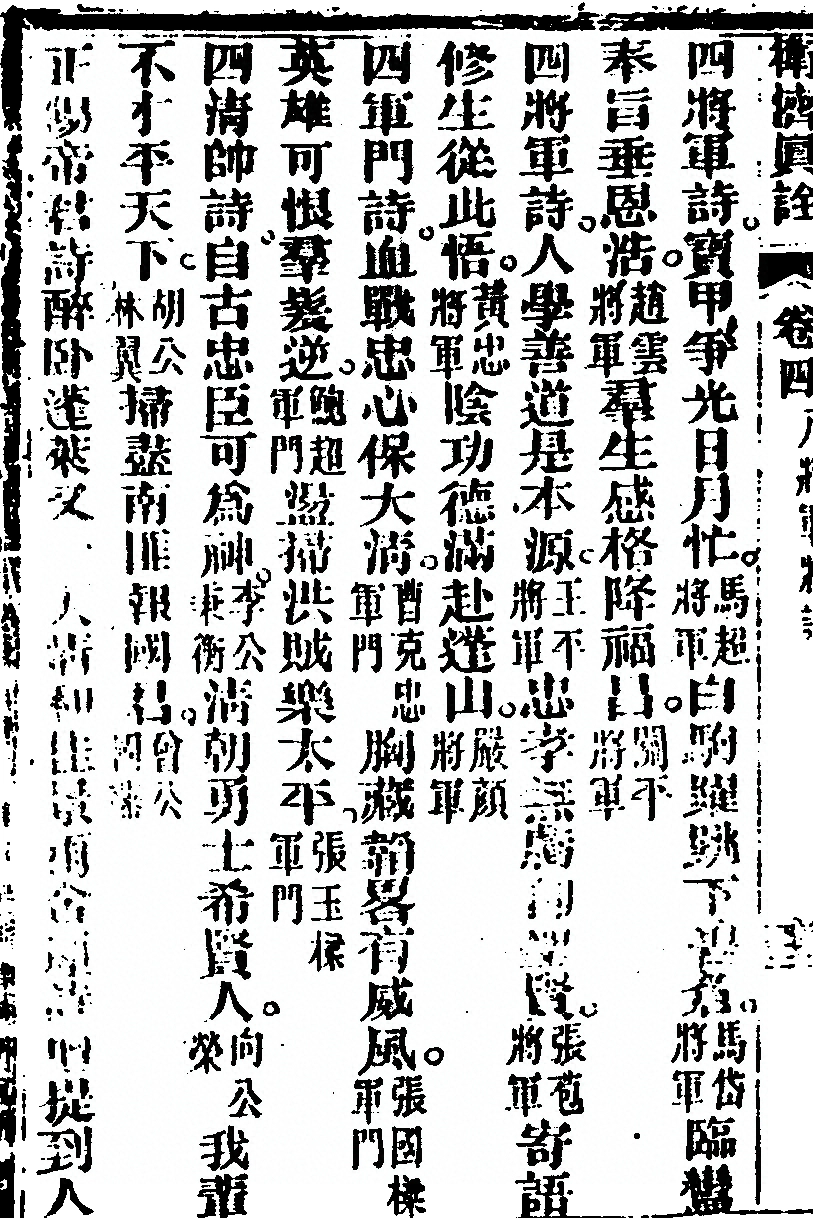 濟真詮 卷四
四將軍詩寶甲爭光日月忙馬超將軍白駒躍跳下馬岱將軍臨
奉旨垂恩浩趙雲將軍羣生感格降福昌關平將軍
四將軍詩人學善道是本源王平將軍忠孝張苞將軍寄語
修生從此悟黃忠將軍陰功德滿赴蓬山嚴顏將軍
四軍門詩血戰忠心保大淸曹克忠軍門胸藏韜畧有威風張國樑軍門
英雄可恨羣髮逆鮑超軍門盪掃洪賊樂太平張玉樑軍門
四淸帥詩自古忠臣可爲神李公秉衡淸朝勇士希賢人向公榮我輩
不才平天下胡公林翼掃盡南匪報國君曾公國藩
正陽帝君詩醉卧蓬萊提到人